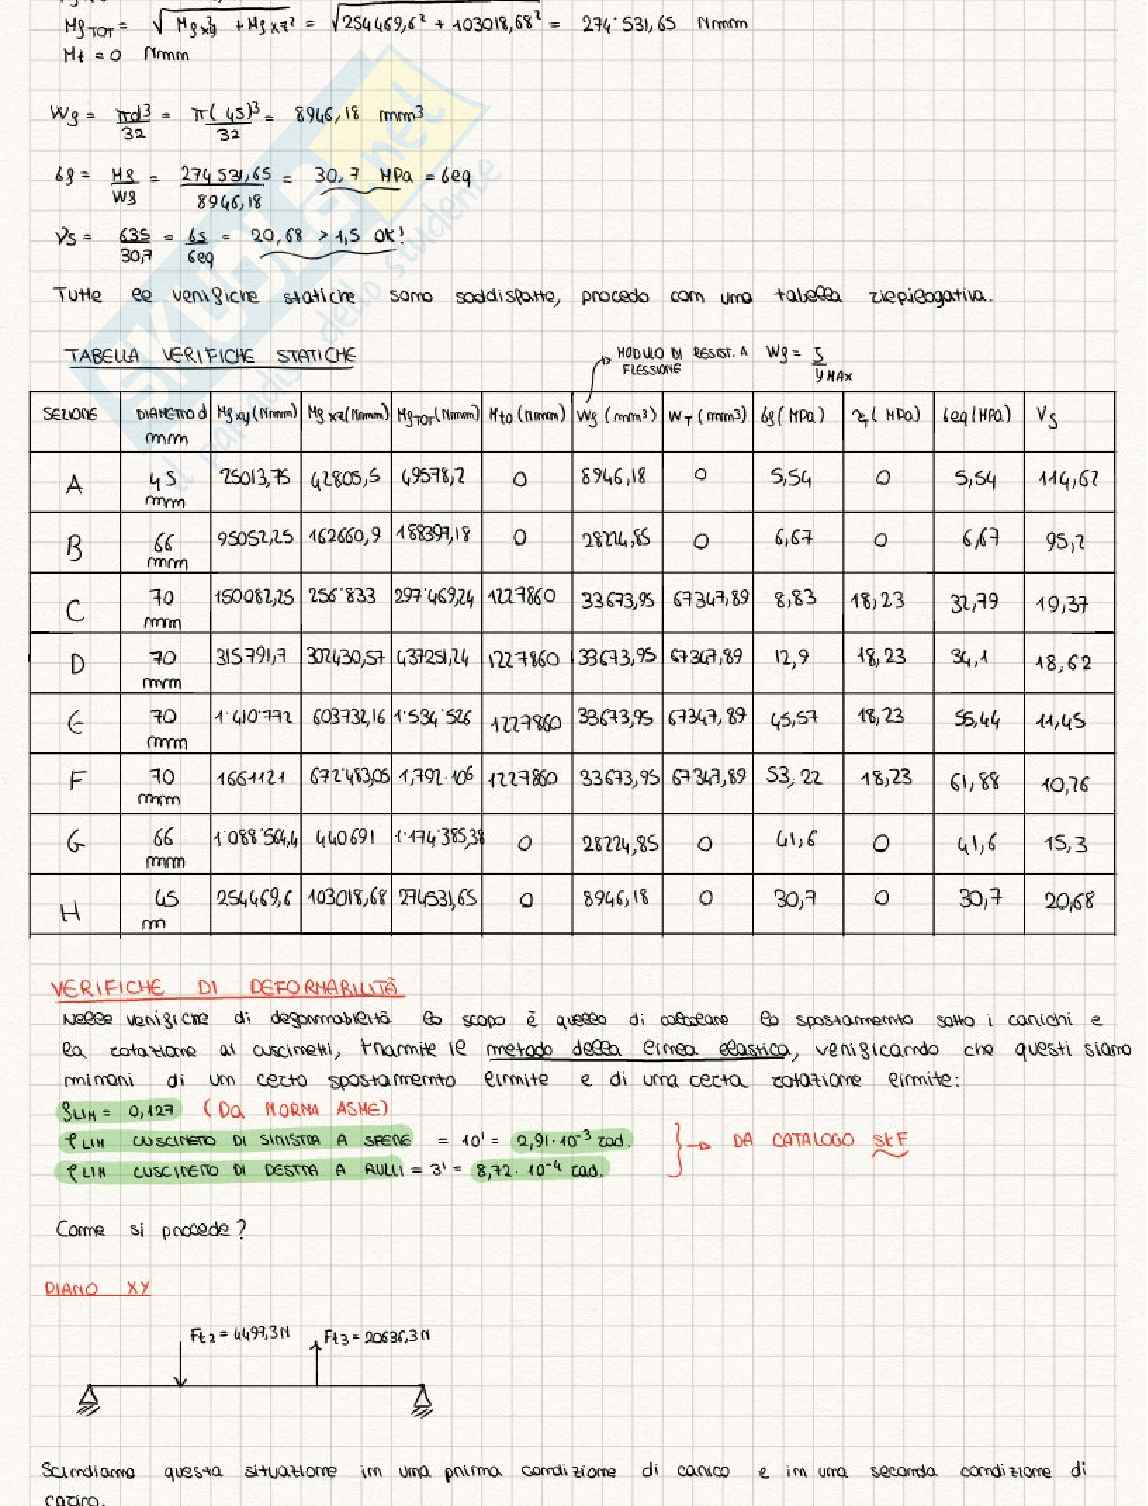 Mf TOT = √(Mf xy² + Mf xz²) = √(254469,6² + 103018,68²) = 274'531,65 Nmm
Mt = 0 Nmm
Wf = πd³/32 = π(45)³/32 = 8946,18 mm³
σf = Mf/Wf = 274531,65/8946,18 = 30,7 MPa = σeq
νs = 635/30,7 = σs/σeq = 20,68 > 1,5 OK!
Tutte le verifiche statiche sono soddisfatte, procedo con una tabella riepilogativa.
TABELLA VERIFICHE STATICHE
MODULO DI RESIST. A FLESSIONE Wf = J/yMAX
SEZIONE DIAMETRO d mm Mf xy (Nmm) Mf xz (Nmm) Mf TOT (Nmm) Mto (Nmm) Wf (mm³) WT (mm³) σf (MPa) τt (MPa) σeq (MPa) νs
A 45 mm 25013,75 42805,5 49578,2 0 8946,18 0 5,54 0 5,54 114,62
B 66 mm 95052,25 162660,9 188397,18 0 28224,85 0 6,67 0 6,67 95,2
C 70 mm 150082,25 256'833 297'469,24 1227860 33673,95 67347,89 8,83 18,23 32,79 19,37
D 70 mm 315791,7 302430,57 437251,24 1227860 33673,95 67347,89 12,9 18,23 34,1 18,62
E 70 mm 1'410'772 603732,16 1'534'526 1227860 33673,95 67347,89 45,57 18,23 55,44 11,45
F 70 mm 1661121 672'483,05 1,792·10⁶ 1227860 33673,95 67347,89 53,22 18,23 61,88 10,26
G 66 mm 1'088'564,4 440691 1'174'385,38 0 28224,85 0 41,6 0 41,6 15,3
H 45 m 254469,6 103018,68 274531,65 0 8946,18 0 30,7 0 30,7 20,68
VERIFICHE DI DEFORMABILITÀ
Nelle verifiche di deformabilità lo scopo è quello di calcolare lo spostamento sotto i carichi e
la rotazione ai cuscinetti, tramite il metodo della linea elastica, verificando che questi siano
minori di un certo spostamento limite e di una certa rotazione limite:
fLIM = 0,127 (DA NORMA ASME)
φLIM CUSCINETO DI SINISTRA A SFERE = 10' = 2,91·10⁻³ rad.
φLIM CUSCINETO DI DESTRA A RULLI = 3' = 8,72·10⁻⁴ rad.
DA CATALOGO SKF
Come si procede?
PIANO XY
Ft2 = 4499,3N Ft3 = 20636,3N
Scindiamo questa situazione in una prima condizione di carico e in una seconda condizione di
carico.
skuola.net
il paradiso dello studente